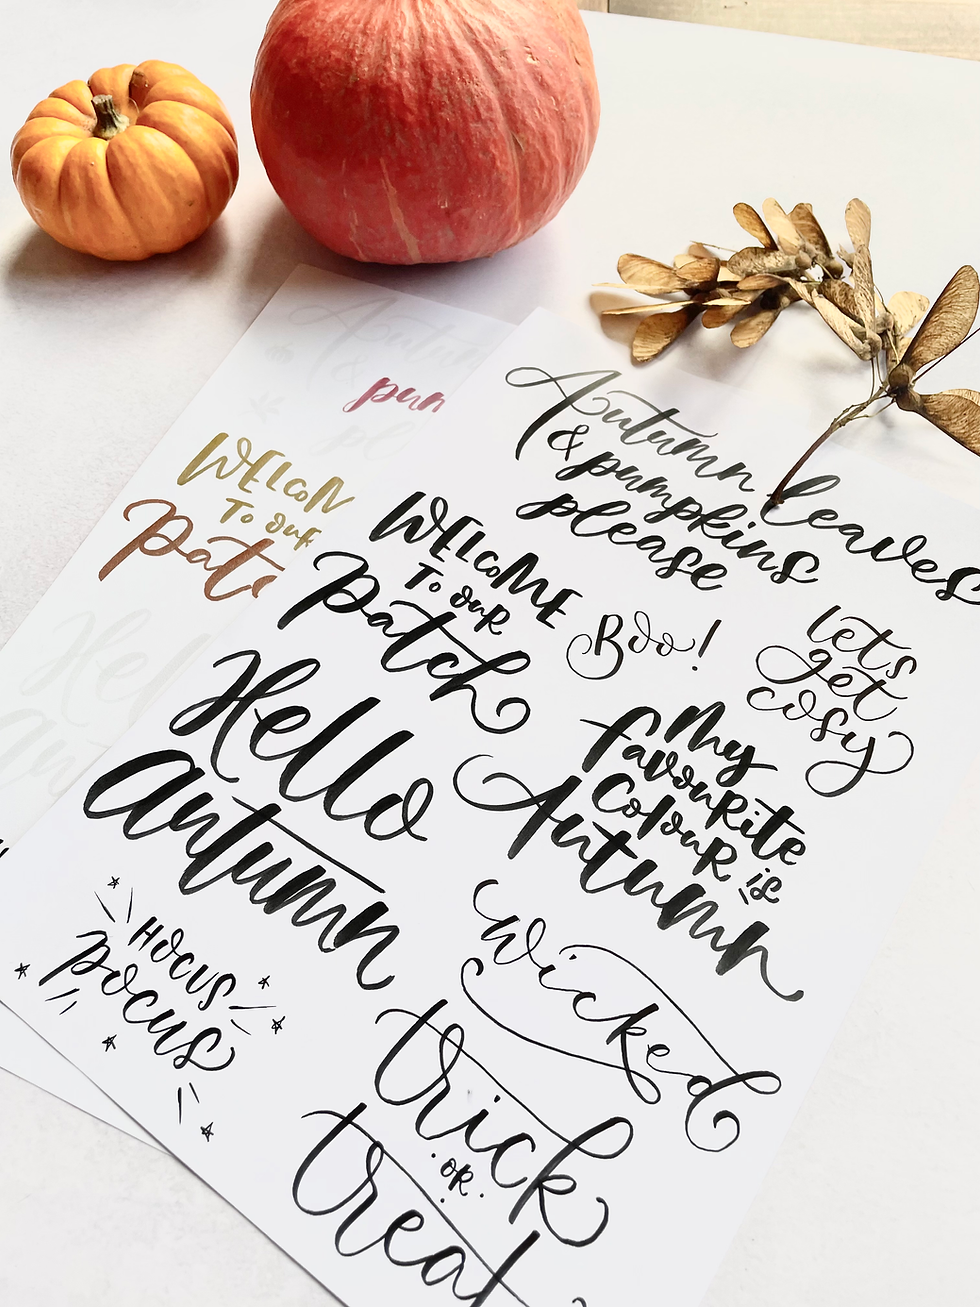 Autumn leaves
& pumpkins
please
WELCOME
To our
Patch
Boo!
let's
get
cosy
Hello
Autumn
My
favourite
Colour is
Autumn
HOCUS
pocus
Wicked
trick
.OR.
treat
pum
WELCOM
To our
Patc